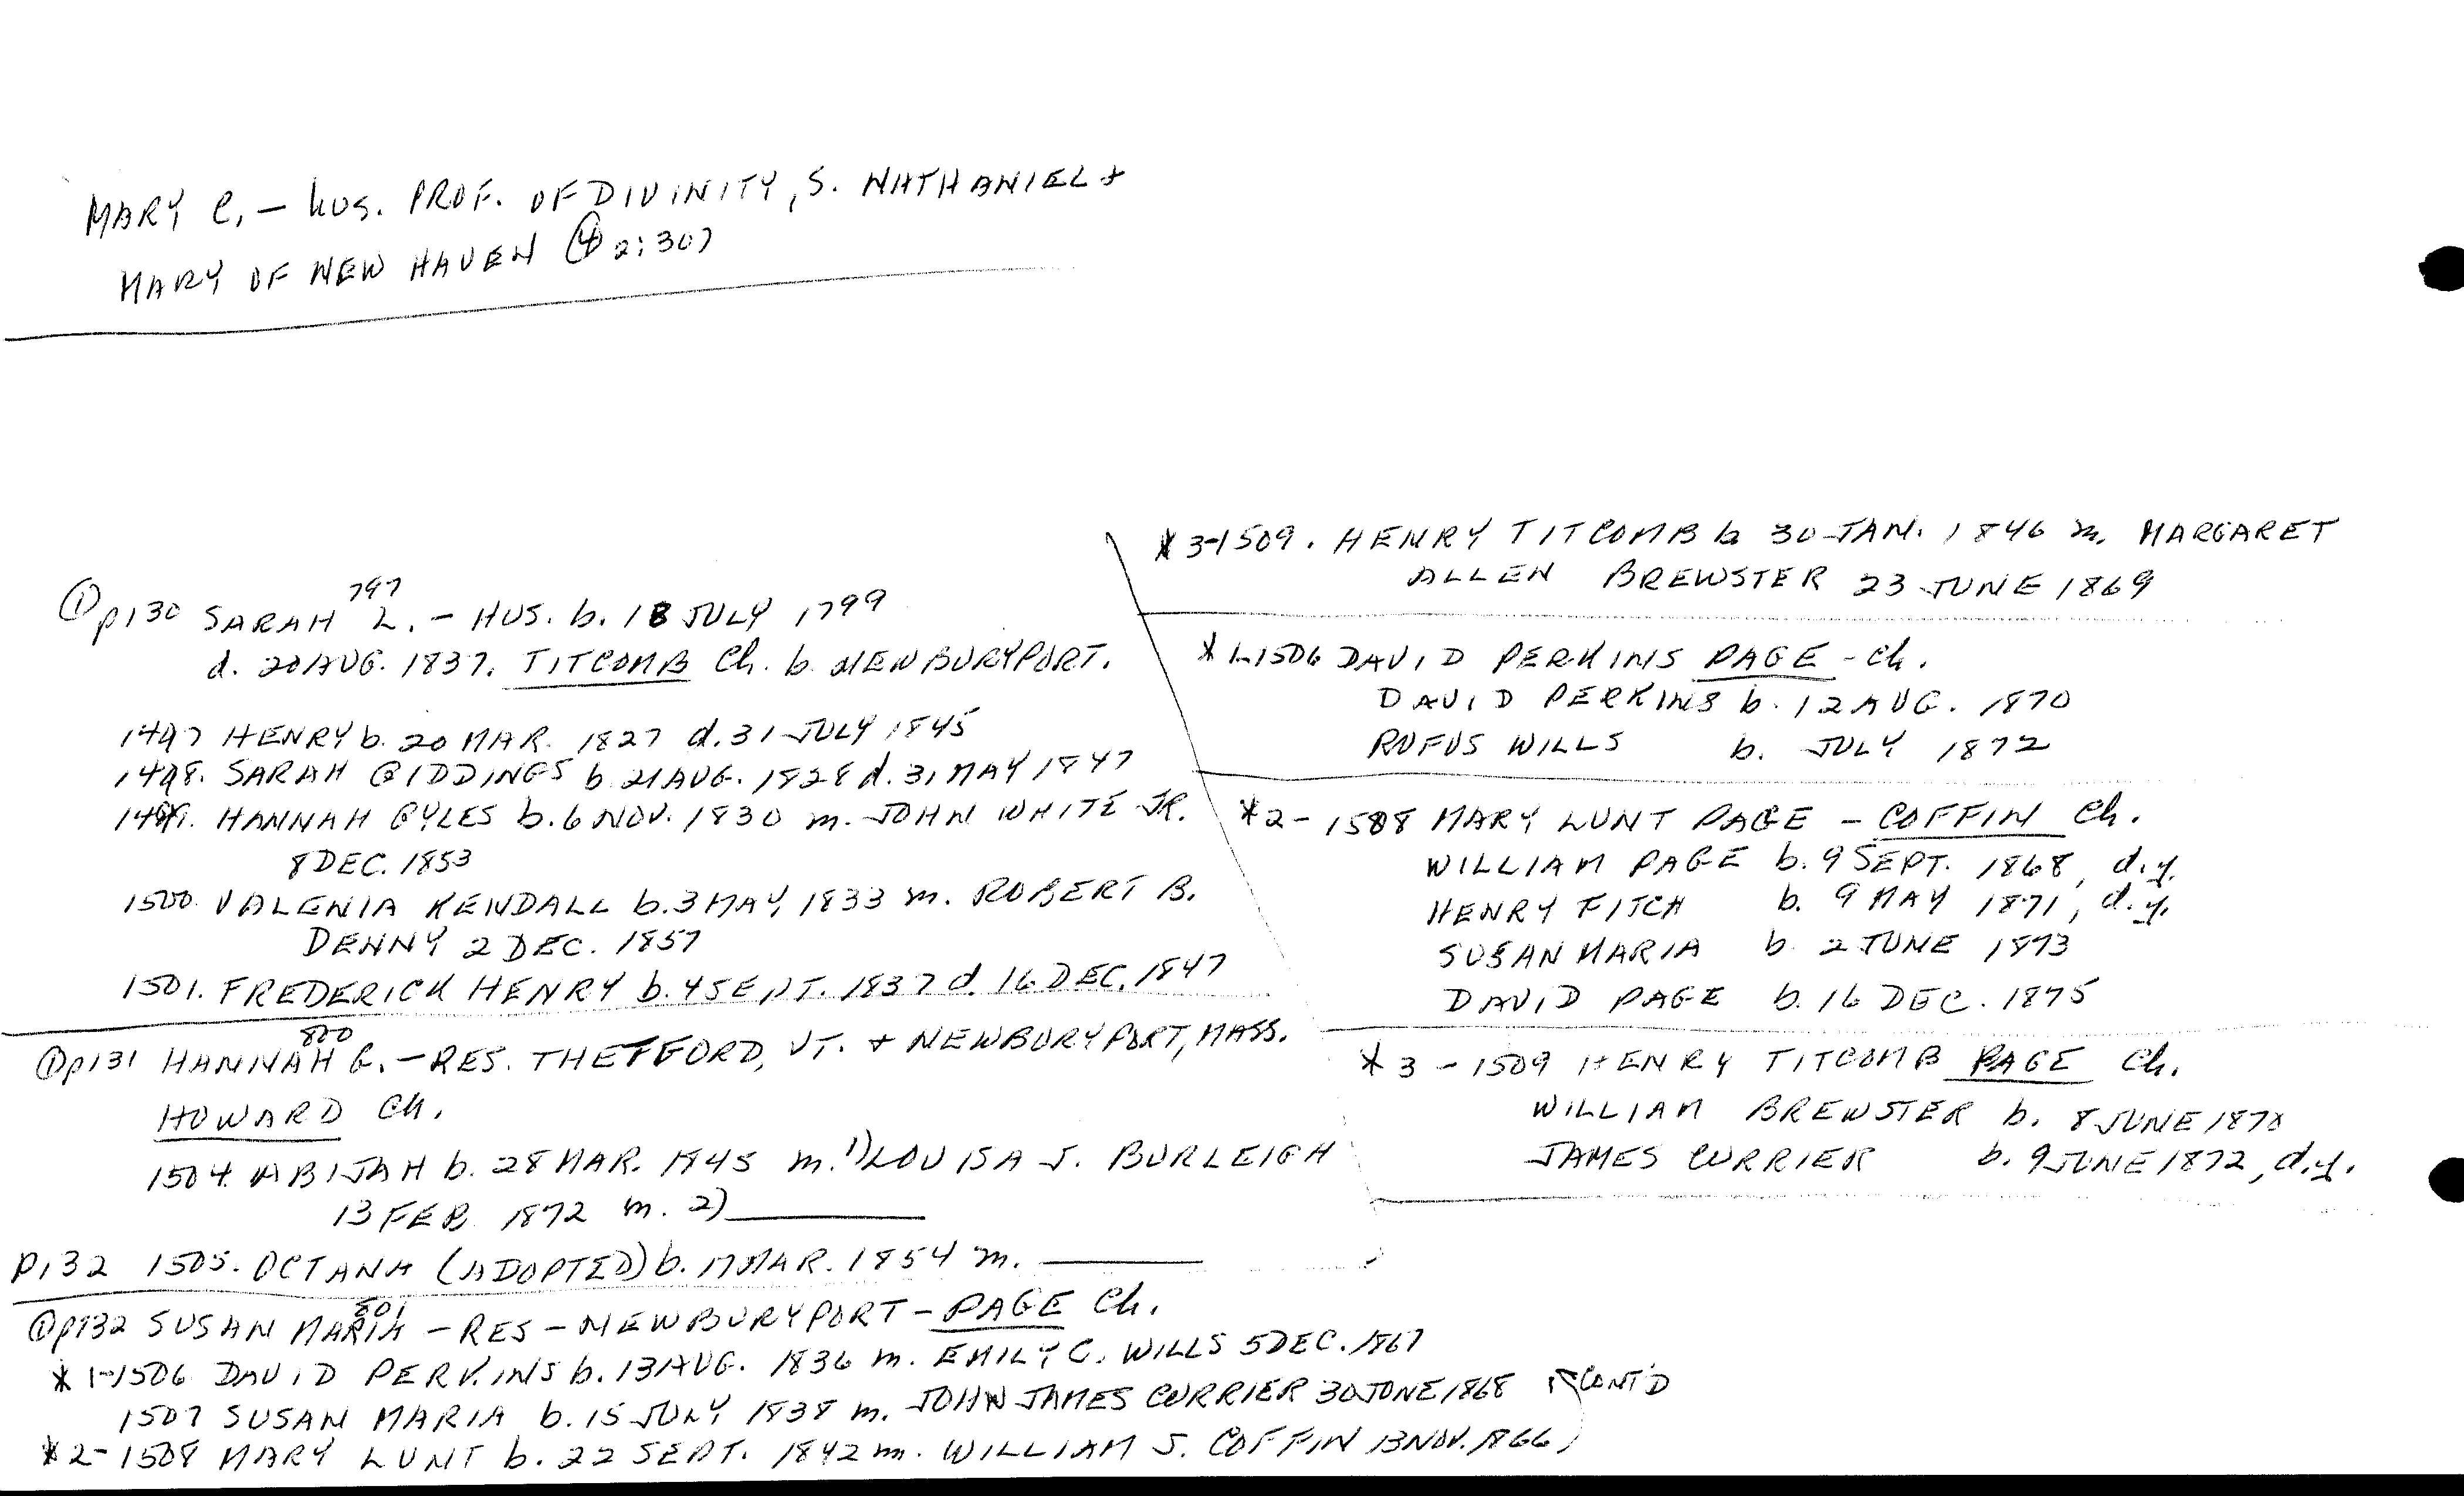 MARY C. – hus. PROF. OF DIVINITY, S. NATHANIEL +
MARY OF NEW HAVEN (4) 2:307
(1) p130 SARAH 797 L. – HUS. b. 18 JULY 1799
d. 20 AUG. 1837. TITCOMB Ch. b. NEWBURYPORT.
1497 HENRY b. 20 MAR. 1827 d. 31 JULY 1845
1498. SARAH GIDDINGS b. 21 AUG. 1828 d. 31 MAY 1847
1499. HANNAH GYLES b. 6 NOV. 1830 m. JOHN WHITE JR.
8 DEC. 1853
1500. VALENIA KENDALL b. 3 MAY, 1833 m. ROBERT B.
DENNY 2 DEC. 1857
1501. FREDERICK HENRY b. 4 SEPT. 1837 d. 16 DEC. 1847
(1) p131 HANNAH 800 G. – RES. THETFORD, VT. + NEWBURYPORT, MASS.
HOWARD Ch.
1504. ABIJAH b. 28 MAR. 1845 m. 1) LOUISA J. BURLEIGH
13 FEB. 1872 m. 2) ______
p132 1505. OCTANA (ADOPTED) b. 17 MAR. 1854 m. ______
(1) p132 SUSAN MARIA 801 – RES – NEWBURYPORT – PAGE Ch.
* 1-1506 DAVID PERKINS b. 13 AUG. 1836 m. EMILY C. WILLS 5 DEC. 1867
1507 SUSAN MARIA b. 15 JULY 1838 m. JOHN JAMES CURRIER 30 JUNE 1868 CONT'D
* 2-1508 MARY LUNT b. 22 SEPT. 1842 m. WILLIAM S. COFFIN 13 NOV. 1866
* 3-1509. HENRY TITCOMB b 30 JAN. 1846 m. MARGARET
ALLEN BREWSTER 23 JUNE 1869
* 1-1506 DAVID PERKINS PAGE – Ch.
DAVID PERKINS b. 12 AUG. 1870
RUFUS WILLS b. JULY 1872
* 2- 1508 MARY LUNT PAGE – COFFIN Ch.
WILLIAM PAGE b. 9 SEPT. 1868, d.y.
HENRY FITCH b. 9 MAY 1871, d.y.
SUSAN MARIA b. 2 JUNE 1873
DAVID PAGE b. 16 DEC. 1875
* 3 - 1509 HENRY TITCOMB PAGE Ch.
WILLIAM BREWSTER b. 8 JUNE 1870
JAMES CURRIER b. 9 JUNE 1872, d.y.